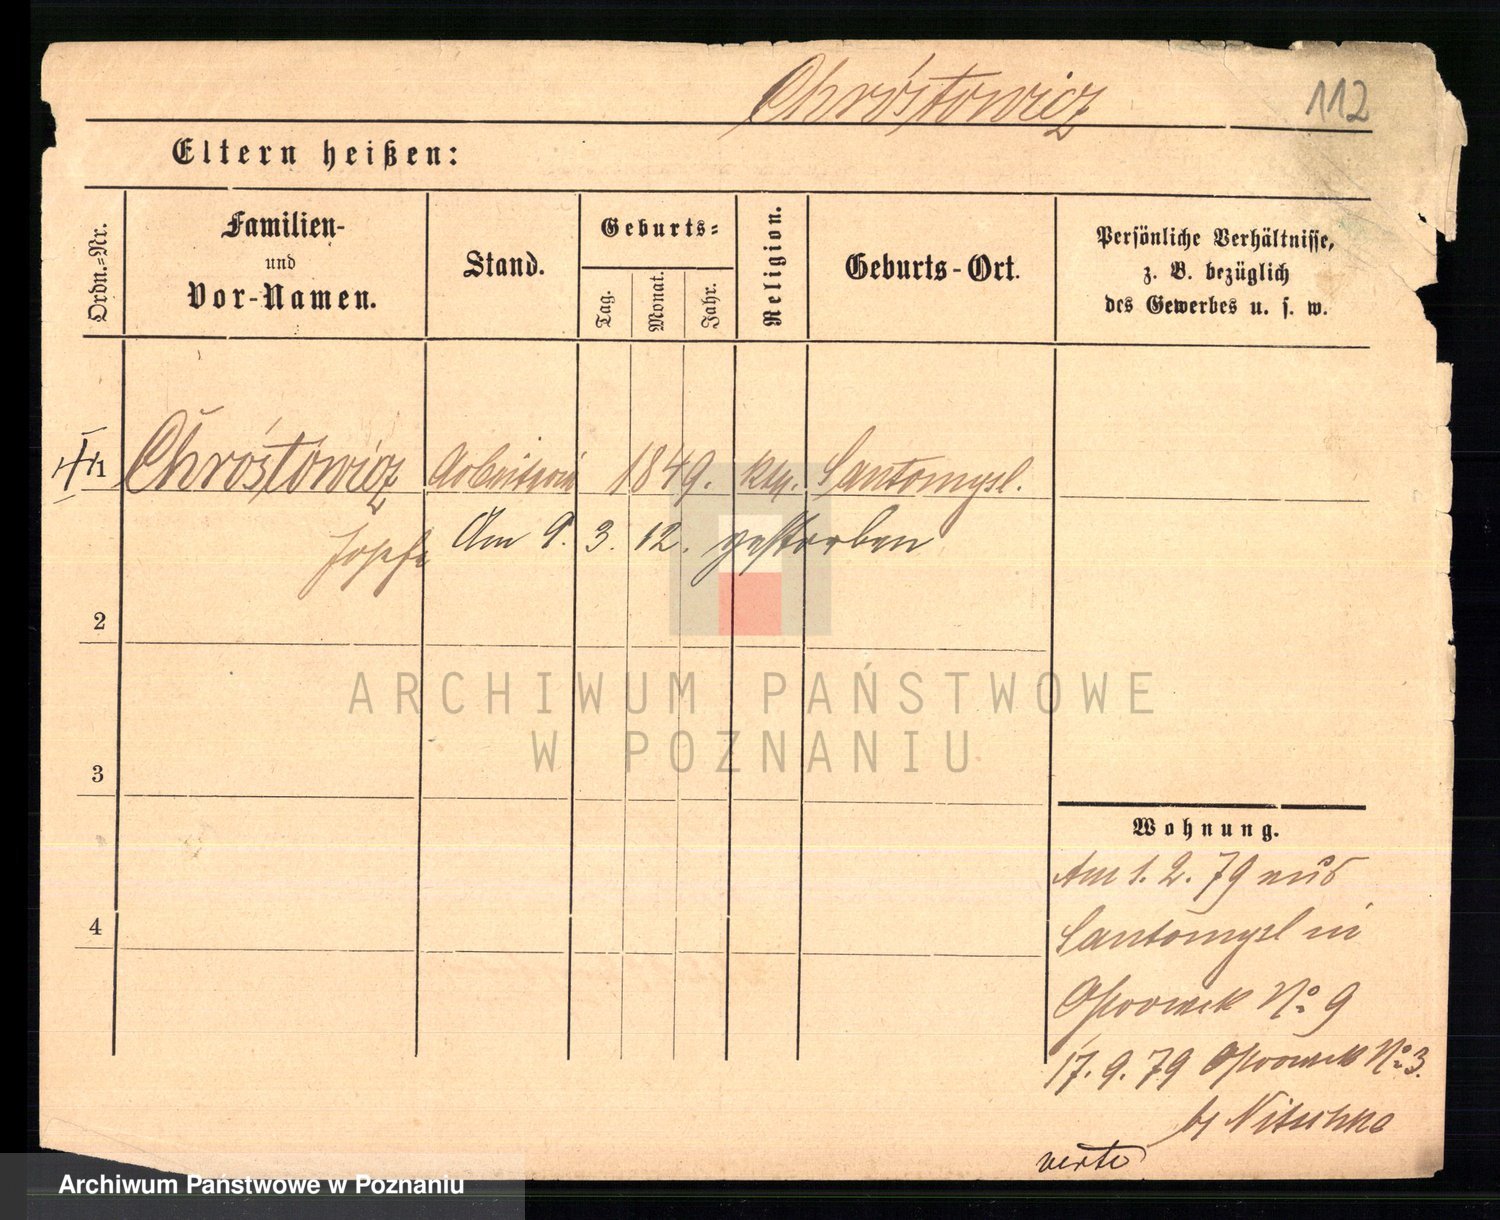 Chróstowicz
112
Eltern heißen:
Ordn.-Nr.
Familien- und Vor-Namen.
Stand.
Geburts-
Tag.
Monat.
Jahr.
Religion.
Geburts-Ort.
Persönliche Verhältnisse,
z. B. bezüglich
des Gewerbes u. s. w.
1 Chróstowicz Arbeiterin 1849. kth. Santomysl.
Josefa Am 9. 3. 12. gestorben
2
3
4
ARCHIWUM PAŃSTWOWE
W POZNANIU
Wohnung.
Am 1. 2. 79 aus
Santomysl in
Ostrowek No 9
17. 9. 79 Ostrowek No 3.
b/ Nitschke
verte
Archiwum Państwowe w Poznaniu